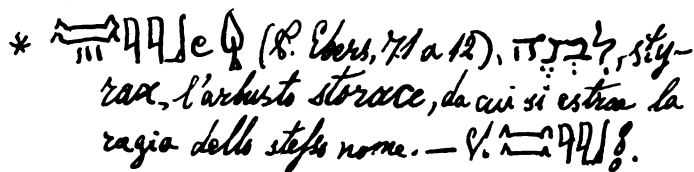 * (P. Ebers, 71 a 12), לִבְנֶה, sty-
rax, l'arbusto storace, da cui si estrae la
ragia dello stesso nome. — V.